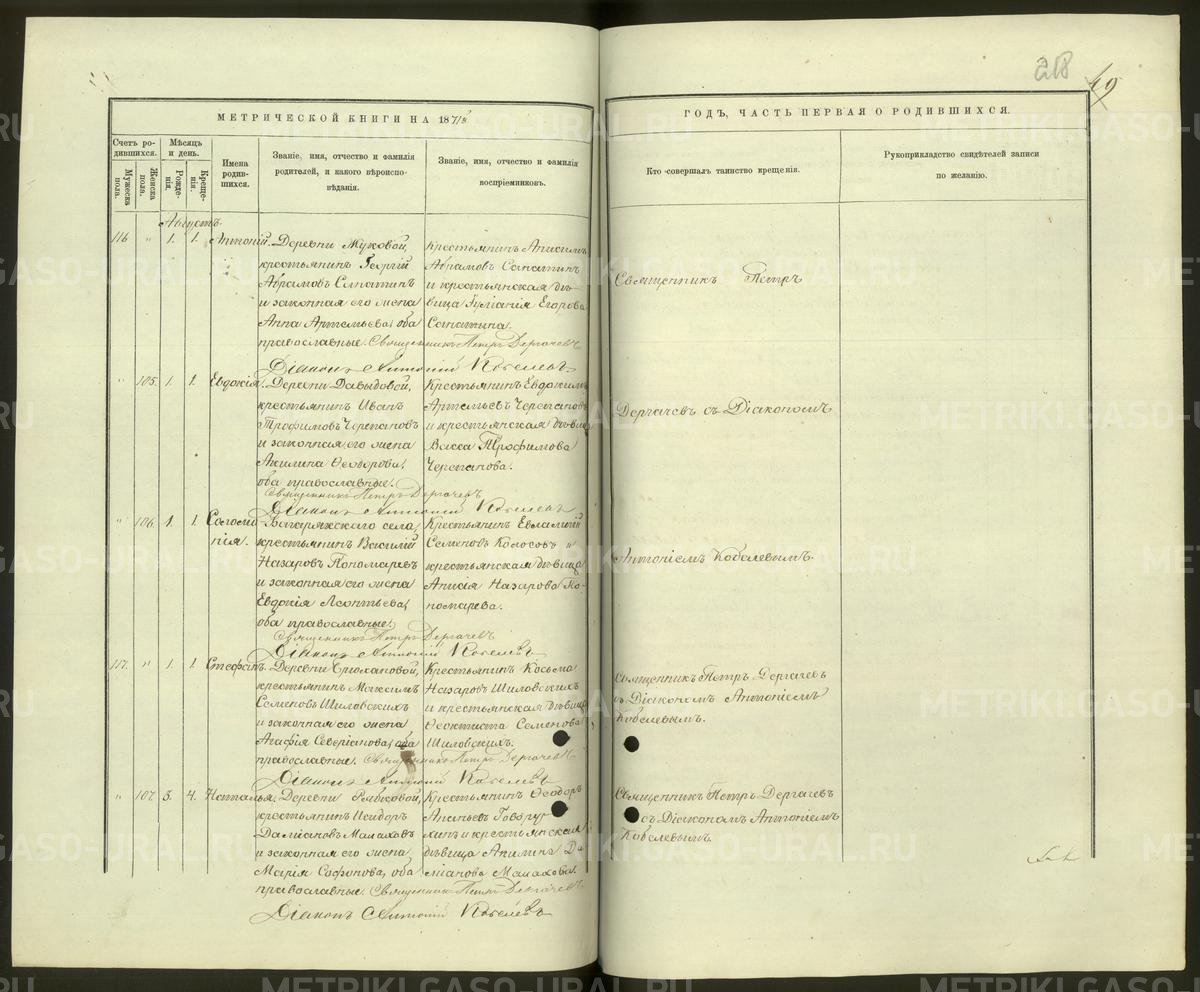 218
49
МЕТРИЧЕСКОЙ КНИГИ НА 187
ГОДЪ, ЧАСТЬ ПЕРВАЯ О РОДИВШИХСЯ.
Счетъ ро-
дившихся.
Мѣсяцъ
и день.
Мужеска
пола.
Женска
пола.
Рожде-
нія.
Креще-
нія.
Имена
родив-
шихся.
Званіе, имя, отчество и фамилія
родителей, и какого вѣроиспо-
вѣданія.
Званіе, имя, отчество и фамилія
воспріемниковъ.
Кто совершалъ таинство крещенія.
Рукоприкладство свидѣтелей записи
по желанію.
Августъ.
116 " 1. 1. Антоній.
Деревни Жуковой,
крестьянинъ Георгій
Абрамовъ
и законная его жена
Анна Артемьева, оба
православные.
Крестьянинъ Анисимъ
Абрамовъ
и крестьянская дѣ-
вица Егорова
Священникъ Петръ
Священникъ Петръ Дергачевъ
Діаконъ Антоній Кобелевъ
" 105. 1. 1. Евдокія.
Деревни Давыдовой,
крестьянинъ Иванъ
Трофимовъ Черепановъ
и законная его жена
Акилина Ѳеодорова,
оба православные.
Крестьянинъ Евдокимъ
Артемьевъ Черепановъ
и крестьянская дѣвица
Васса Трофимова
Черепанова.
Дергачевъ съ Діакономъ
Священникъ Петръ Дергачевъ
Діаконъ Антоній Кобелевъ
" 106. 1. 1. Соломо-
нія.
Багарякскаго села,
крестьянинъ Василій
Назаровъ Пономаревъ
и законная его жена
Евдокія Леонтьева,
оба православные.
Крестьянинъ Евлампій
Семеновъ Колосовъ и
крестьянская дѣвица
Анисія Назарова По-
номарева.
Антоніемъ Кобелевымъ.
Священникъ Петръ Дергачевъ
Діаконъ Антоній Кобелевъ
117. " 1. 1. Стефанъ.
Деревни
крестьянинъ Максимъ
Семеновъ Шиловскихъ
и законная его жена
Агафія Северіанова, оба
православные.
Крестьянинъ Косьма
Назаровъ Шиловскихъ
и крестьянская дѣвица
Ѳеоктиста Семенова
Шиловскихъ.
Священникъ Петръ Дергачевъ
съ Діакономъ Антоніемъ
Кобелевымъ.
Священникъ Петръ Дергачевъ
Діаконъ Антоній Кобелевъ
" 107. 3. 4. Наталья.
Деревни
крестьянинъ Исидоръ
Даміановъ Малаховъ
и законная его жена
Марія Софонова, оба
православные.
Крестьянинъ Ѳеодоръ
Ананьевъ Говору-
хинъ и крестьянская
дѣвица Акилина Да-
міанова Малахова.
Священникъ Петръ Дергачевъ
съ Діакономъ Антоніемъ
Кобелевымъ.
Священникъ Петръ Дергачевъ
Діаконъ Антоній Кобелевъ
METRIKI.GASO-URAL.RU